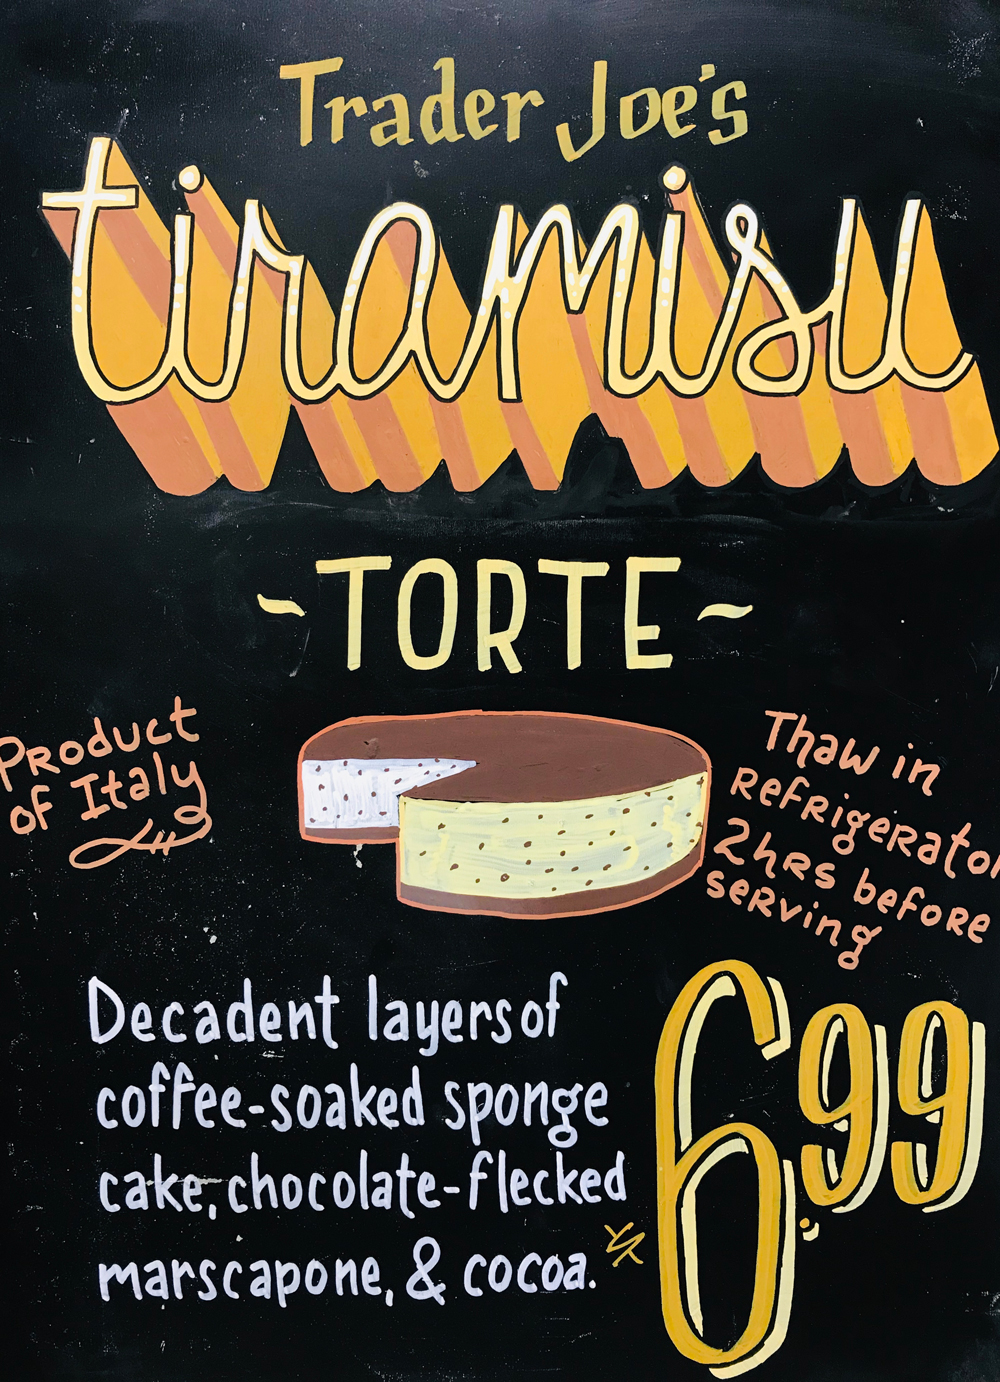 Trader Joe's
tiramisu
~TORTE~
Product
of Italy
Thaw in
Refrigerator
2hrs before
serving
Decadent layers of
coffee-soaked sponge
cake, chocolate-flecked
marscapone, & cocoa.
6.99